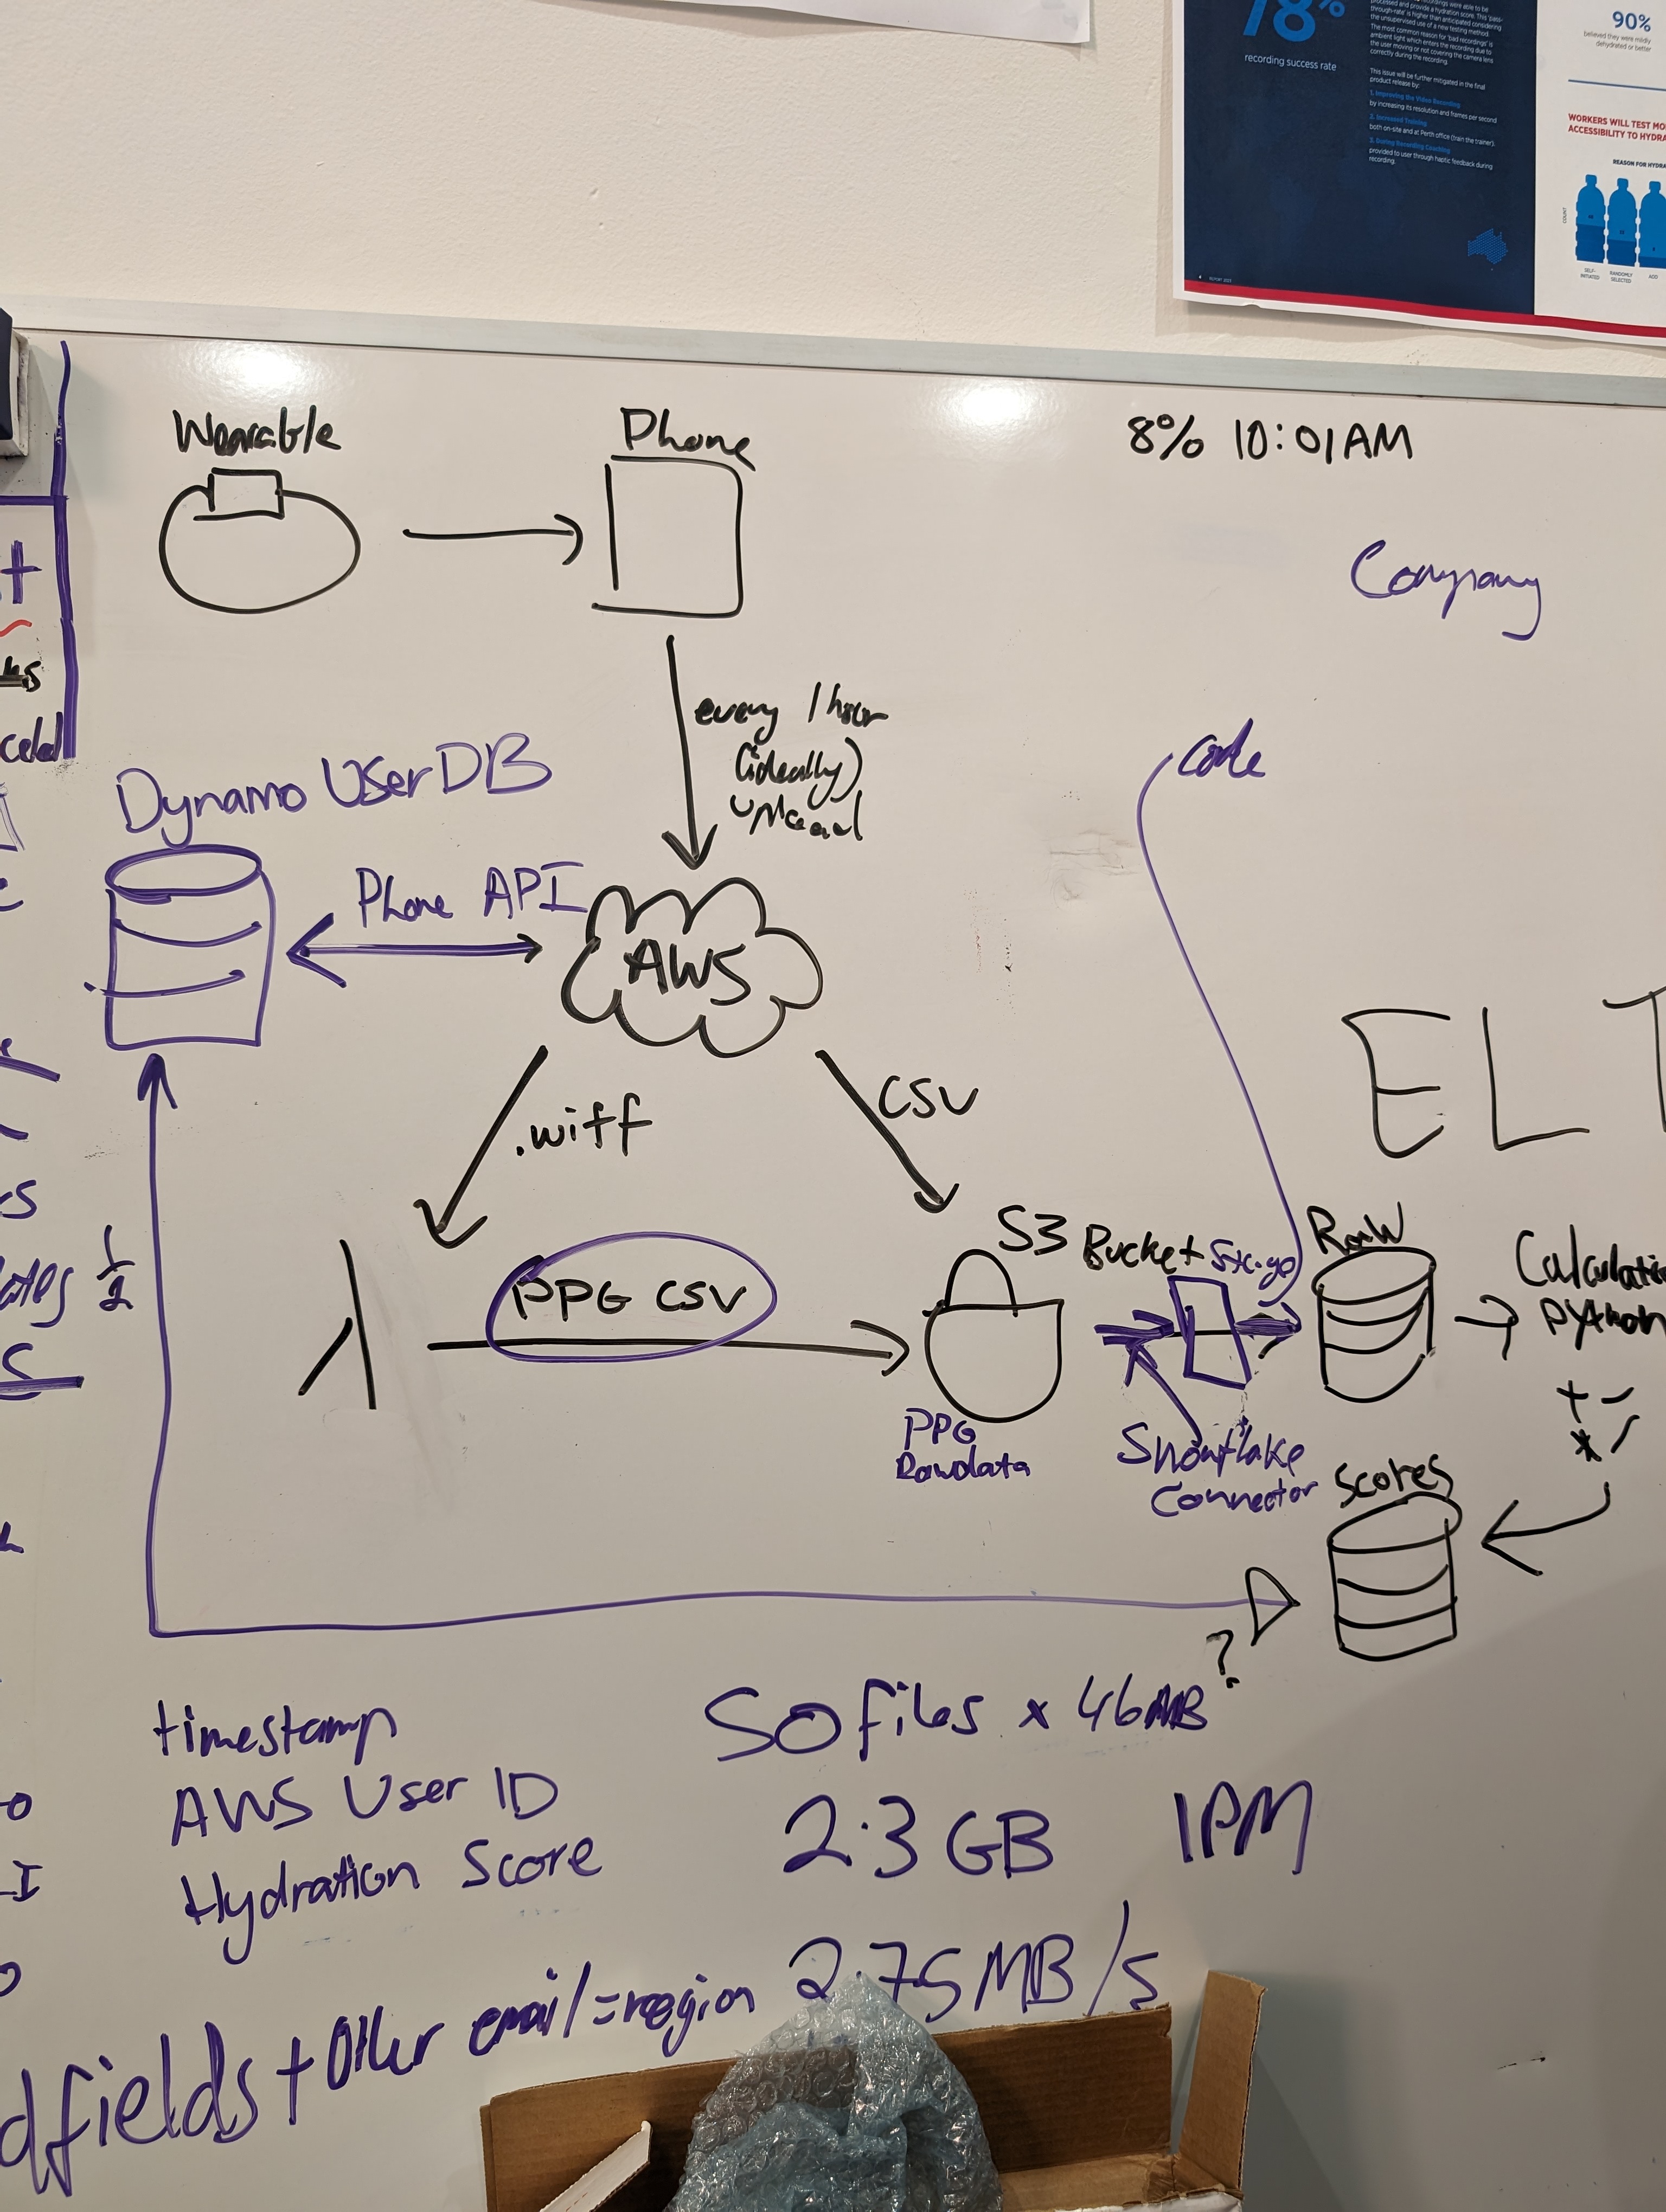 78%
recording success rate
processed and provide a hydration score. This 'pass-
through-rate' is higher than anticipated considering
the unsupervised use of a new testing method.
The most common reason for 'bad recordings' is
ambient light which enters the recording due to
the user moving or not covering the camera lens
correctly during the recording.
This issue will be further mitigated in the final
product release by:
1. Improving the Video Recording
by increasing its resolution and frames per second
2. Increased Training
both on-site and at Perth office (train the trainer).
3. During Recording Coaching
provided to user through haptic feedback during
recording.
90%
believed they were mildly
dehydrated or better
WORKERS WILL TEST
ACCESSIBILITY TO
REASON FOR
COUNT
SELF-
INITIATED
RANDOMLY
SELECTED
Wearable
Phone
8% 10:01AM
Company
every 1 hour
(ideally)
upload
code
Dynamo User DB
Phone API
AWS
.wiff
CSV
ELT
S3 Bucket
Raw
Python
1/2
λ
PPG CSV
+ -
* /
PPG
Rawdata
Snowflake
Connector
Scores
?
timestamp
50 files x 46MB
AWS User ID
2.3 GB
1PM
Hydration Score
2.75 MB/s
fields + Other email=region